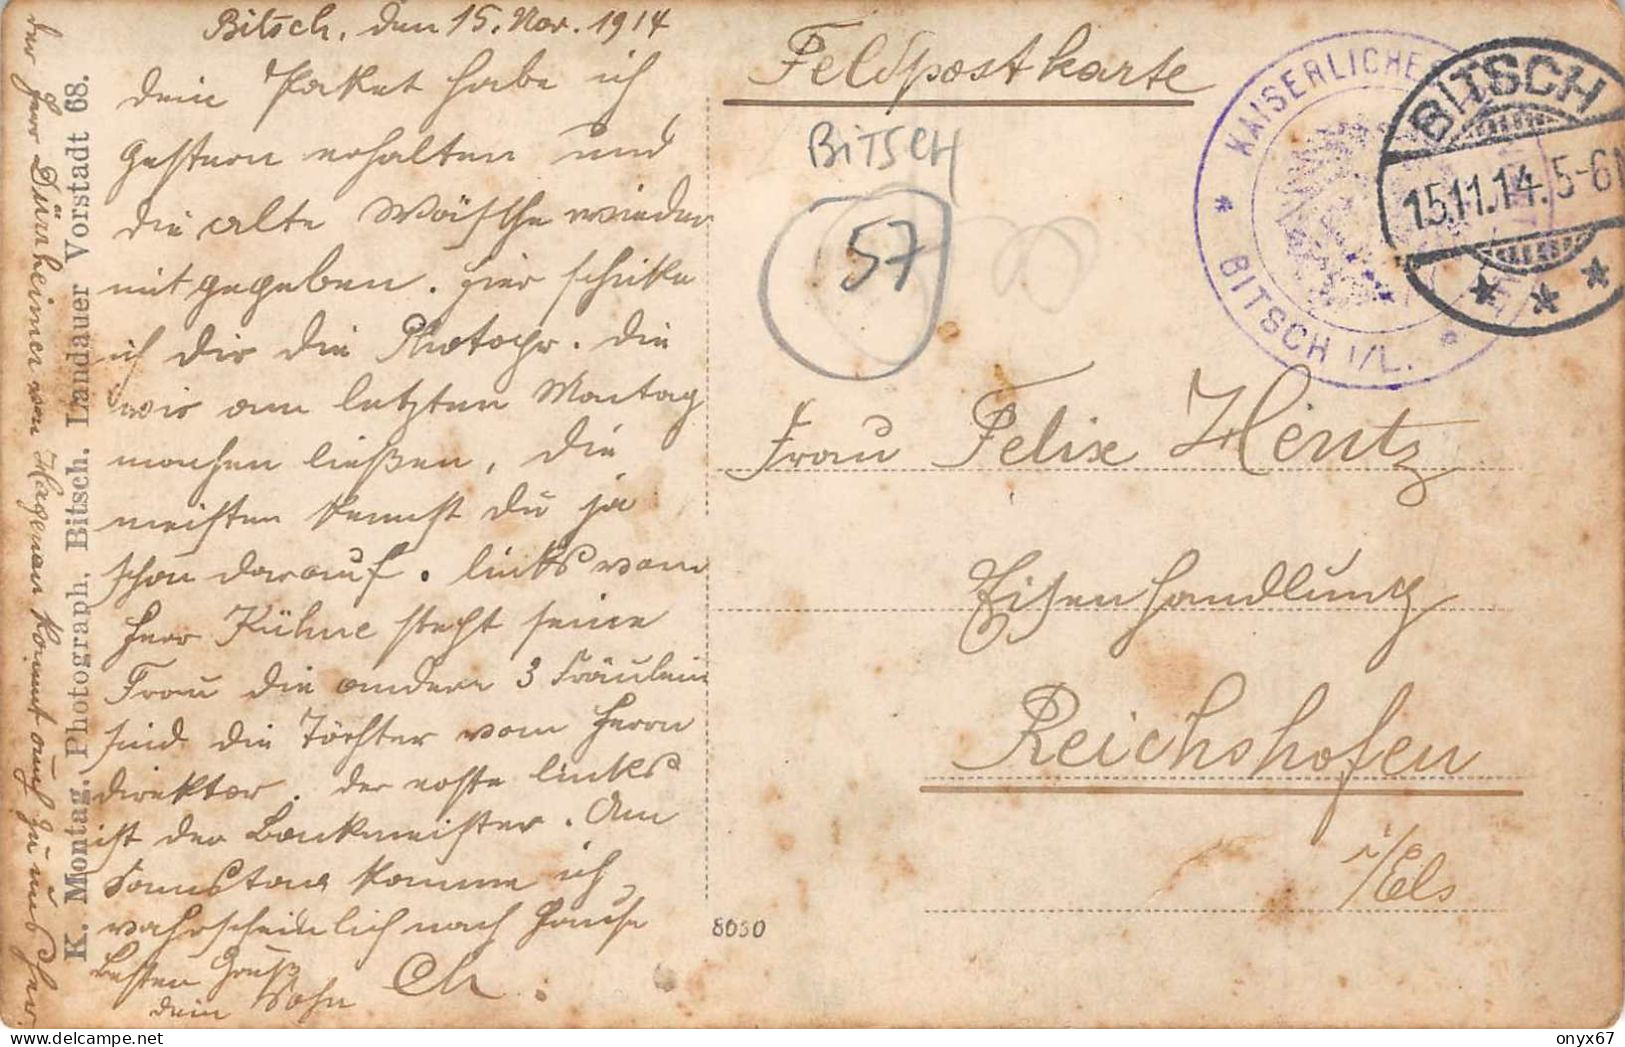 Bitsch, den 15. Nov. 1914
dein Paket habe ich
gestern erhalten und
die alte Wäsche wieder
mit gegeben. hier schike
ich dir die Photogr. die
wir am letzten Montag
machen ließen, die
meisten kennst du ja
schon darauf. links vom
Herr Kühne steht seine
Frau die andern 3 Fräulein
sind die Töchter vom Herrn
direktor. der erste links
ist der Bankmeister. Am
Samstag komme ich
wahrscheinlich nach Hause
Besten Gruß
dein Sohn Ch.
der Herr Dürrheimer von Hagenau kommt auch zu uns her.
K. Montag, Photograph, Bitsch, Landauer Vorstadt 68.
Feldpostkarte
BITSCH
57
KAISERLICHES
BITSCH i/L.
BITSCH
15.11.14. 5-6N
Frau Felix Hentz
Eisenhandlung
Reichshofen
i/Els
8030
delcampe.net
onyx67